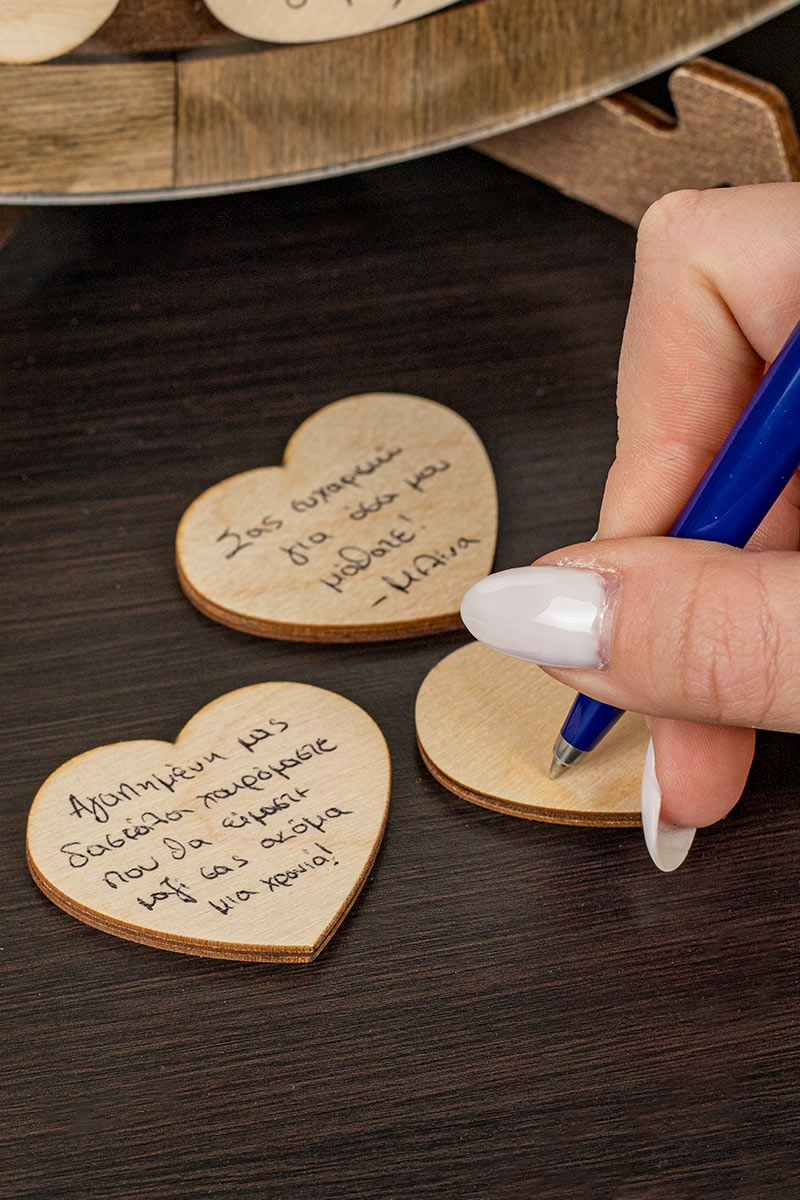 Σας ευχαριστώ
για όσα μου
μάθατε!
- Μελίνα
Αγαπημένη μας
δασκάλα χαιρόμαστε
που θα είμαστε
μαζί σας ακόμα
μια χρονιά!